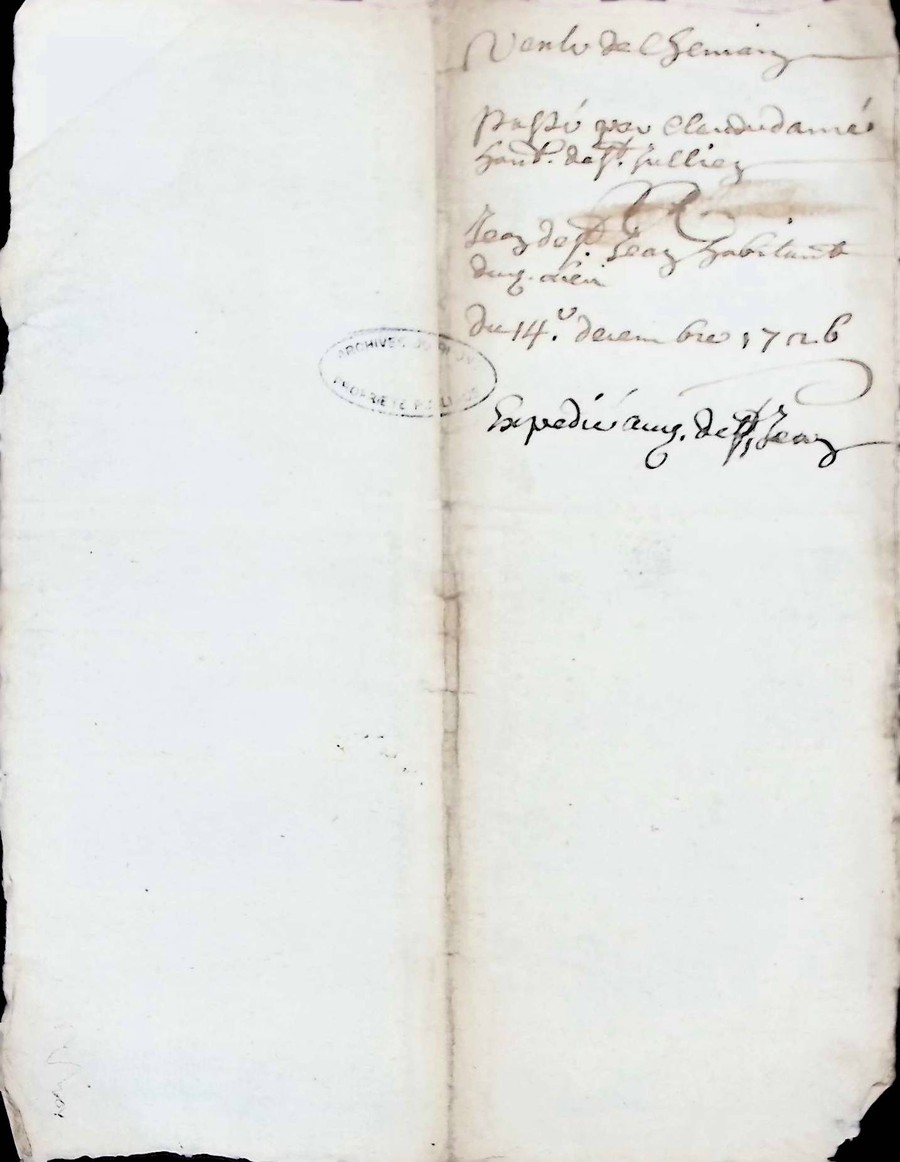 Vente de chemin
passé par Claude damé
habt. de st. Jullien
A
Jean de st. Jean habitant
dud. lieu
du 14e. decembre 1726
ARCHIVES DU
PROPRIÉTÉ PUBLIQUE
Expedié aud. de st Jean